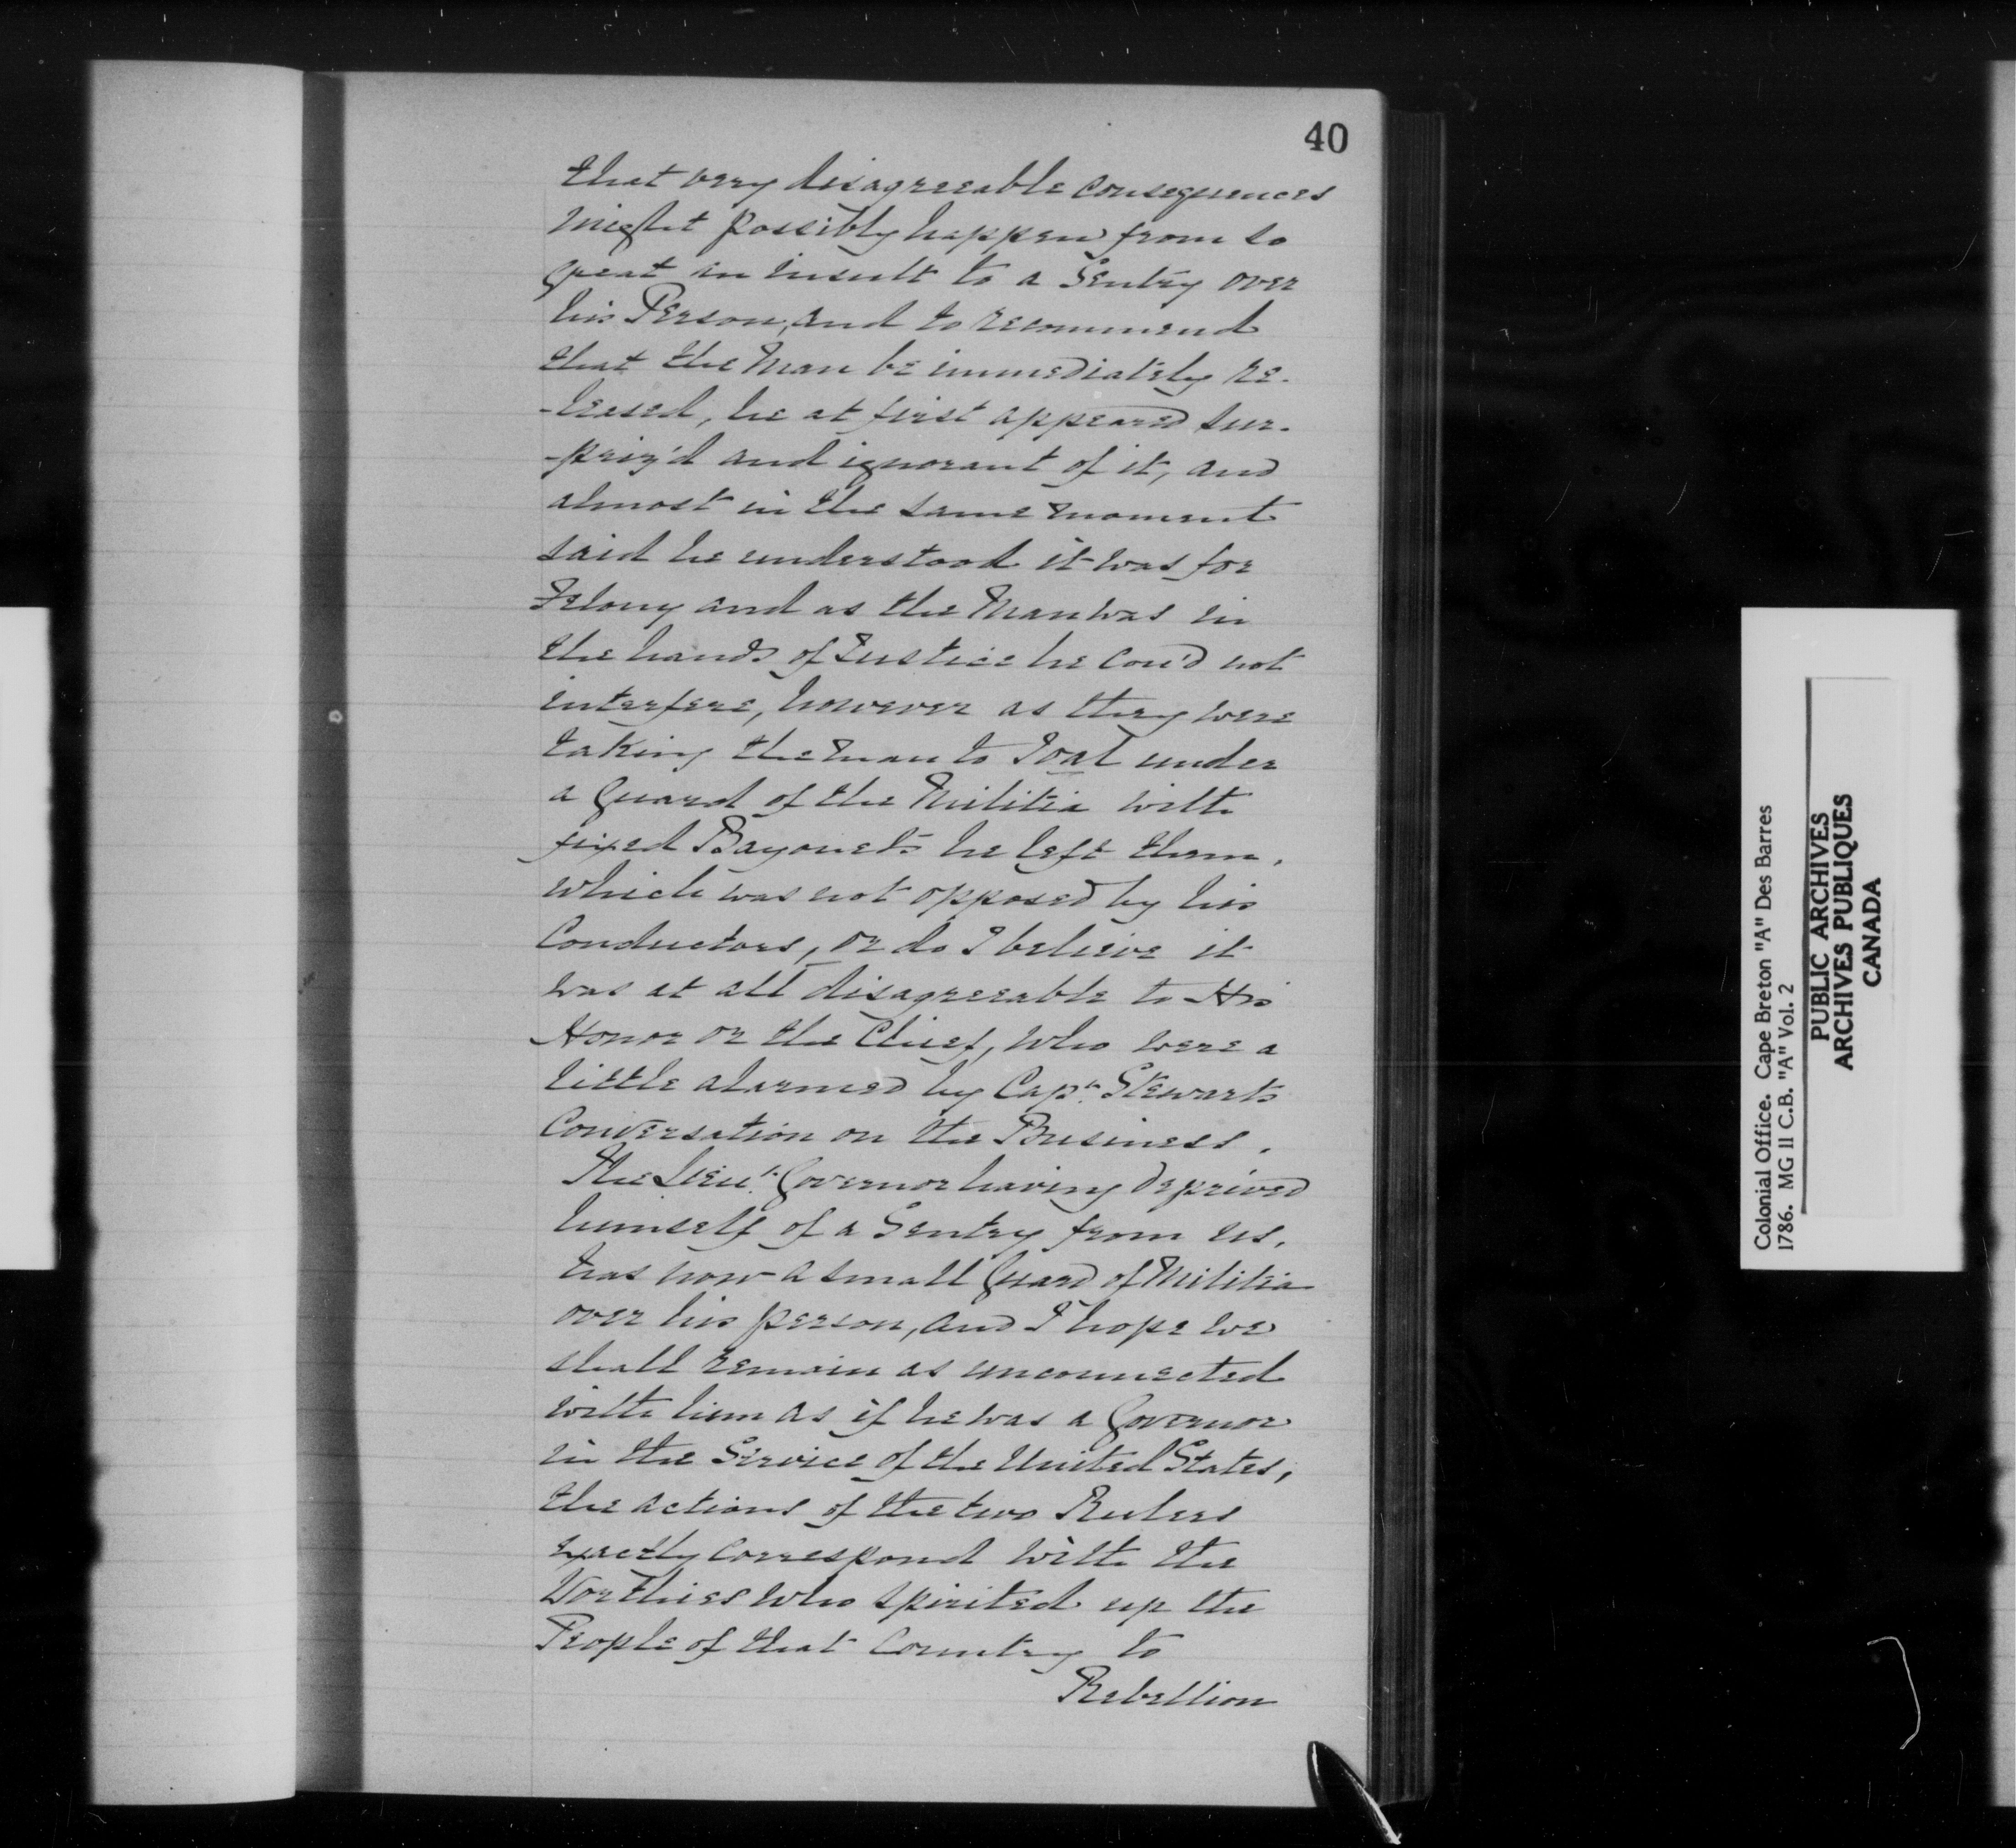 40
that very disagreeable consequences
might possibly happen from so
great an insult to a Sentry over
his Person, and to recommend
that the Man be immediately re-
-leased, he at first appeared sur-
-priz'd and ignorant of it, and
almost in the same moment
said he understood it was for
Felony and as the Man was in
the hands of Justice he cou'd not
interfere, however as they were
taking the man to Goal under
a Guard of the Militia with
fixed Bayonets he left them,
which was not opposed by his
Conductors, or do I believe it
was at all disagreeable to His
Honor or the Chief, who were a
little alarmed by Capt. Stewarts
Conversation on the Business.
The Lieut. Governor having deprived
himself of a Sentry from us,
has now a small Guard of Militia
over his person, and I hope we
shall remain as unconnected
with him as if he was a Governor
in the Service of the United States,
the actions of the two Rulers
exactly correspond with the
Worthies who spirited up the
People of that Country to
Rebellion
Colonial Office. Cape Breton "A" Des Barres
1786. MG 11 C.B. "A" Vol. 2
PUBLIC ARCHIVES
ARCHIVES PUBLIQUES
CANADA